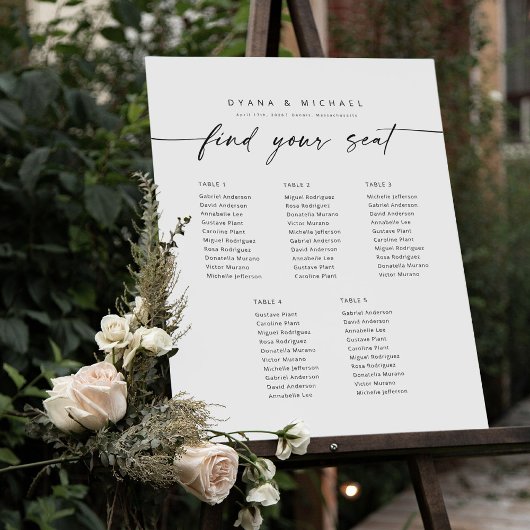 DYANA & MICHAEL
April 17th, 2026 | Massachusetts
find your seat
TABLE 1
Gabriel Anderson
David Anderson
Annabelle Lee
Gustave Plant
Caroline Plant
Miguel Rodriguez
Rosa Rodriguez
Donatella Murano
Victor Murano
Michelle Jefferson
TABLE 2
Miguel Rodriguez
Rosa Rodriguez
Donatella Murano
Victor Murano
Michelle Jefferson
Gabriel Anderson
David Anderson
Annabelle Lee
Gustave Plant
Caroline Plant
TABLE 3
Michelle Jefferson
Gabriel Anderson
David Anderson
Annabelle Lee
Gustave Plant
Caroline Plant
Miguel Rodriguez
Rosa Rodriguez
Donatella Murano
Victor Murano
TABLE 4
Gustave Plant
Caroline Plant
Miguel Rodriguez
Rosa Rodriguez
Donatella Murano
Victor Murano
Michelle Jefferson
Gabriel Anderson
David Anderson
Annabelle Lee
TABLE 5
Gabriel Anderson
David Anderson
Annabelle Lee
Gustave Plant
Caroline Plant
Miguel Rodriguez
Rosa Rodriguez
Donatella Murano
Victor Murano
Michelle Jefferson